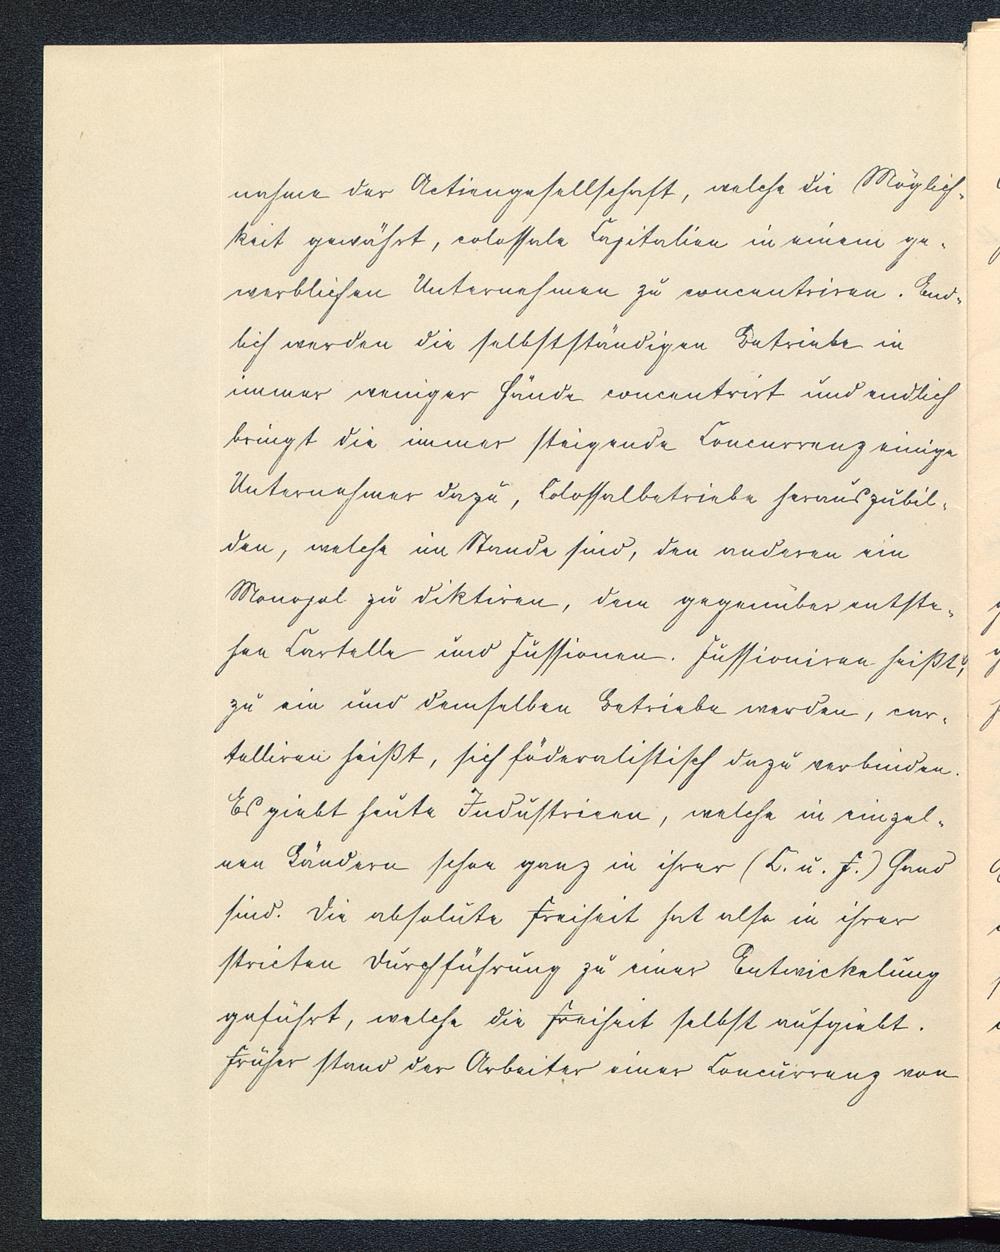 nahme der Actiengesellschaft, welche die Möglich-
keit gewährt, colossale Capitalien in einem ge-
werblichen Unternehmen zu concentriren. End-
lich werden die selbstständigen Betriebe in
immer weniger Hände concentrirt und endlich
bringt die immer steigende Concurrenz einige
Unternehmer dazu, Colossalbetriebe herauszubil-
den, welche im Stande sind, den anderen ein
Monopol zu diktiren, dem gegenüber entste-
hen Cartelle und Fussionen. Fussioniren heißt,
zu ein und demselben Betriebe werden, car-
telliren heißt, sich föderalistisch dazu verbinden.
Es giebt heute Industrieen, welche in einzel-
nen Ländern schon ganz in ihrer (C. u. F.) Hand
sind. Die absolute Freiheit hat also in ihrer
stricten Durchführung zu einer Entwickelung
geführt, welche die Freiheit selbst aufgiebt.
Früher stand der Arbeiter einer Concurrenz von